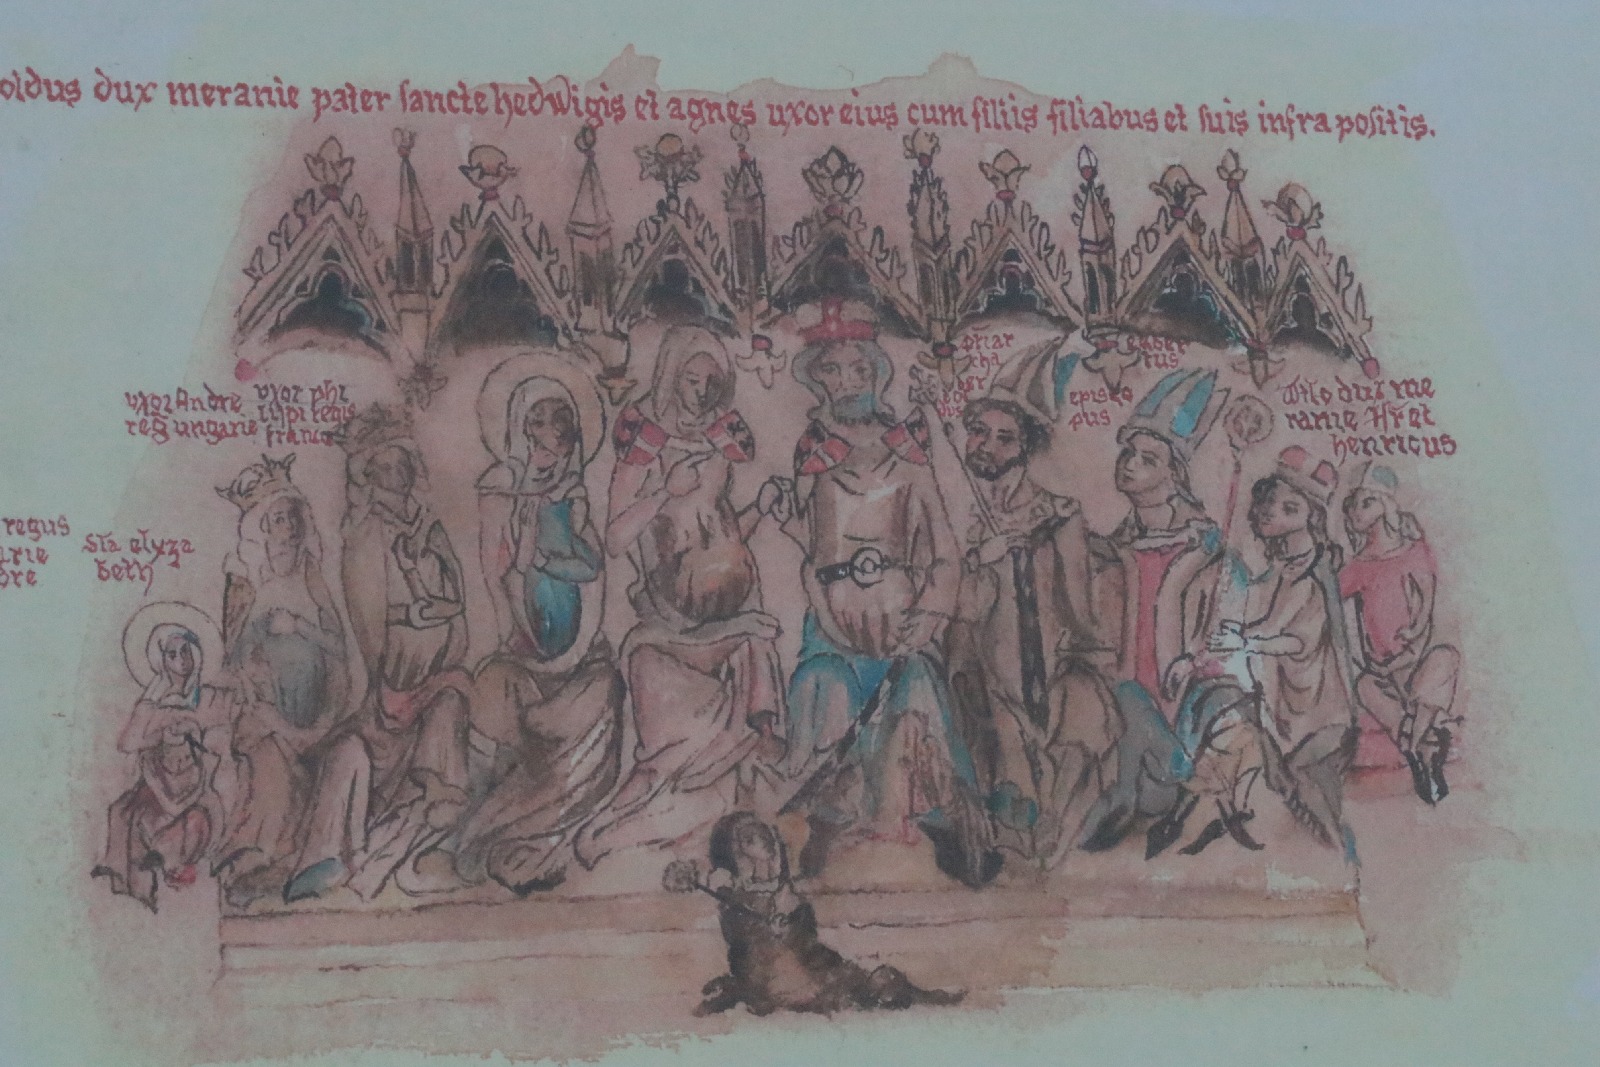 oldus dux meranie pater sancte hedwigis et agnes uxor eius cum filiis filiabus et suis infra positis.
uxor Andre
reg ungarie
uxor phi
lippi regis
francie
regus
Sta elyza
beth
triar
cha
ber
tol
dus
egber
tus
episco
pus
Otto dux me
ranie et
henricus